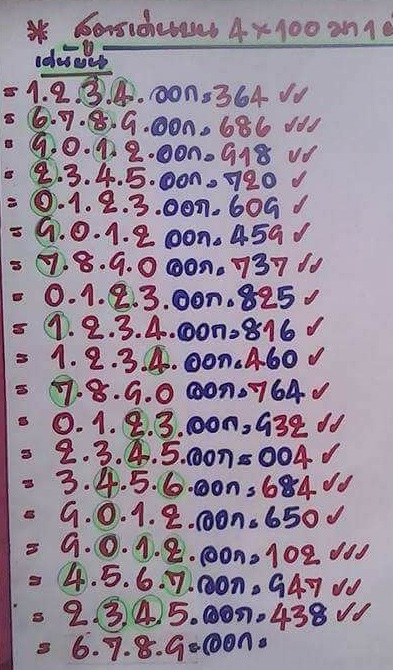 * สูตรเด่นบน 4×100 มา 1
เด่นบน
= 1.2.3.4. ออก = 364 ✓✓
= 6.7.8.9. ออก = 686 ✓✓✓
= 9.0.1.2. ออก = 918 ✓✓
= 2.3.4.5. ออก = 720 ✓
= 0.1.2.3. ออก = 609 ✓
= 9.0.1.2 ออก = 459 ✓
= 7.8.9.0 ออก = 737 ✓✓
= 0.1.2.3. ออก = 825 ✓
= 1.2.3.4. ออก = 816 ✓
= 1.2.3.4. ออก = 460 ✓
= 7.8.9.0 ออก = 764 ✓
= 0.1.2.3. ออก = 932 ✓✓
= 2.3.4.5. ออก = 004 ✓
= 3.4.5.6. ออก = 684 ✓✓
= 9.0.1.2. ออก = 650 ✓
= 9.0.1.2. ออก = 102 ✓✓✓
= 4.5.6.7. ออก = 947 ✓✓
= 2.3.4.5. ออก = 438 ✓✓
= 6.7.8.9 = ออก =